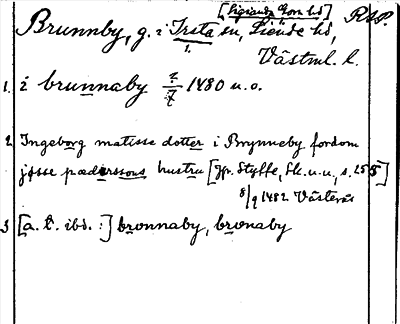 [Siende Gorn hd]
Brunnby, g. i Irsta sn, Siende hd,
RAP.
1.
Västml. l.
1. i brunnaby 2/7 1480 u.o.
2. Ingeborg matisse dotter i Brynneby fordom
jősse pæderssons hustru [Jfr. Styffe, Sk. u. u., s. 255]
8/9 1482 Västerås
3 [a. t. ibd. :] bronnaby, bronaby